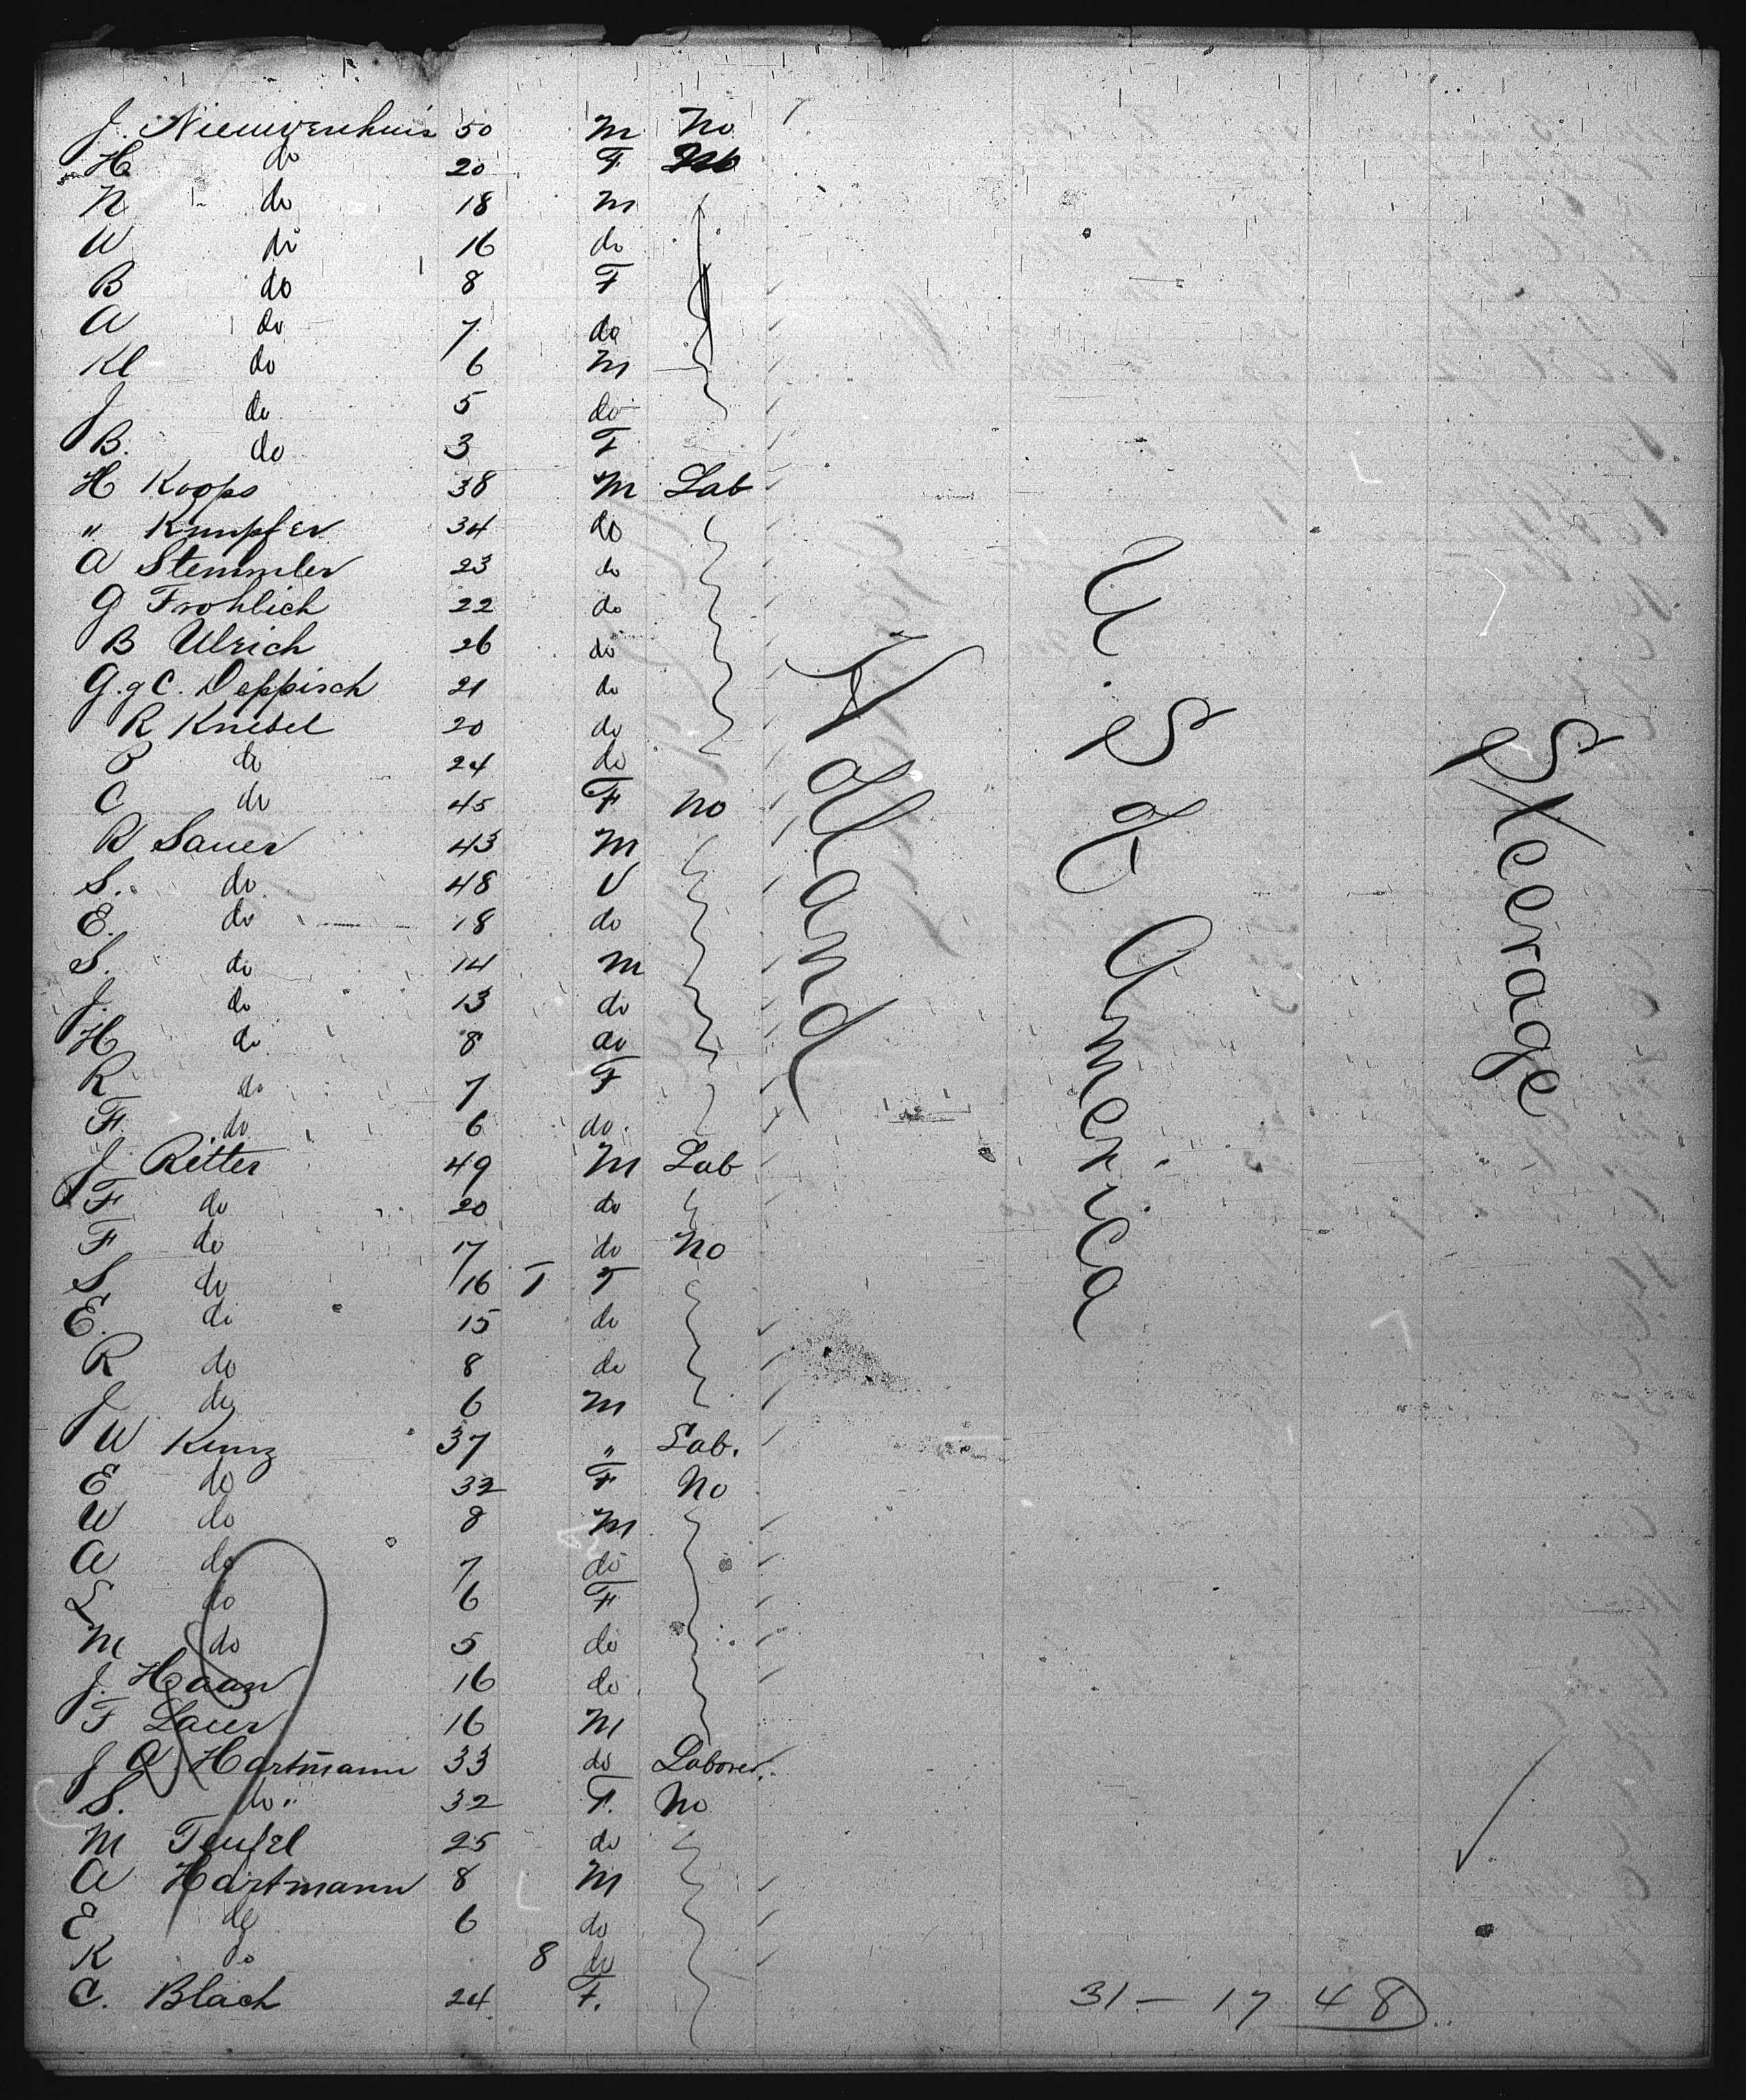 J. Nieuwenhuis 50 M No
H do 20 F No
N do 18 M
W do 16 do
B do 8 F
A do 7 do
Kl do 6 M
J do 5 do
B. do 3 F
H Koops 38 M Lab
" Kumpfer 34 do
A Stemmler 23 do
G Frohlich 22 do
B Ulrich 26 do
G. g C. Deppisch 21 do
R Kniebel 20 do
P do 24 do
C do 45 F No
R Sauer 43 M
S. do 48 F
E. do 18 do
S. do 14 M
J. do 13 do
H do 8 do
R do 7 F
F. do 6 do.
J Ritter 49 M Lab
F do 20 do
F do 17 do No
S do 16 F
E. do 15 do
R do 8 do
J do 6 M
W Kunz 37 " Lab.
E do 32 F No
W do 8 M
A do 7 do
L do 6 F
M do 5 do
J. Haan 16 do
F Lauer 16 M
J A Hartmann 33 do Laborer.
S. do " 32 F. No
M Teufel 25 do
A Hartmann 8 M
E do 6 do
K do 8 do
C. Blach 24 F.
Holland
U. S of America
Steerage
31 — 17 48